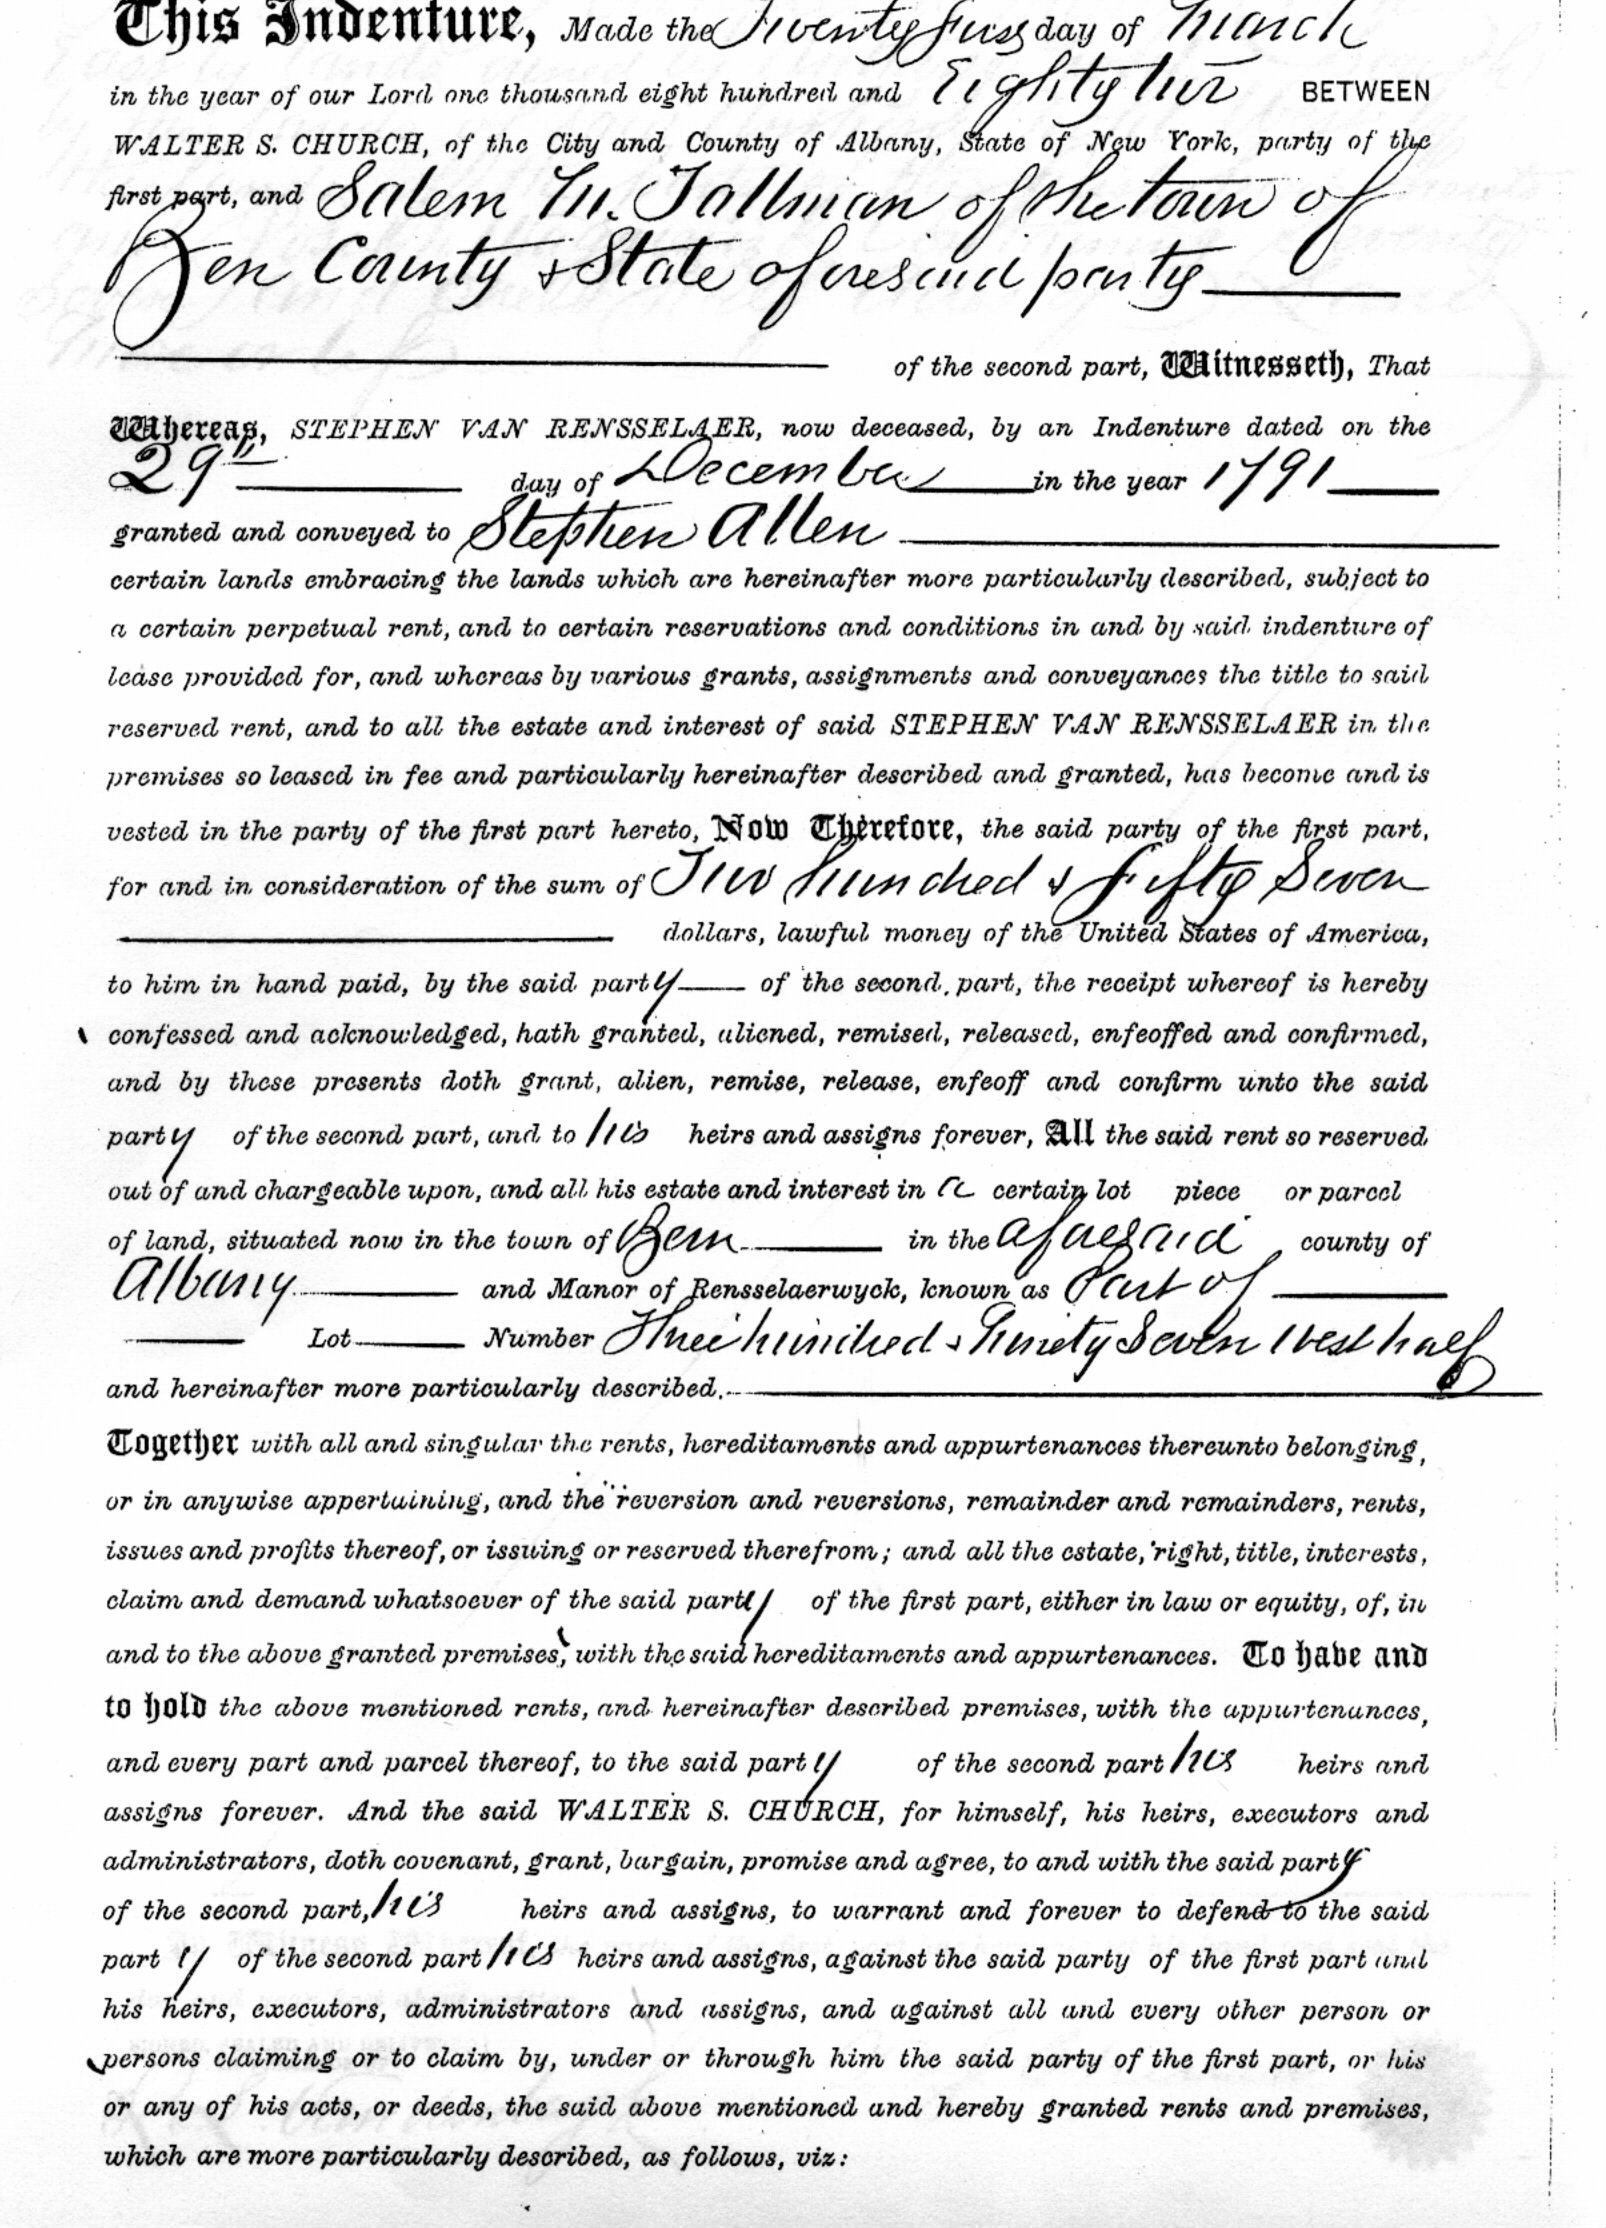 This Indenture, Made the Twenty first day of March
in the year of our Lord one thousand eight hundred and Eighty two BETWEEN
WALTER S. CHURCH, of the City and County of Albany, State of New York, party of the
first part, and Salem M. Tallman of the town of
Bern County & State aforesaid party
of the second part, Witnesseth, That
Whereas, STEPHEN VAN RENSSELAER, now deceased, by an Indenture dated on the
29th day of December in the year 1791
granted and conveyed to Stephen Allen
certain lands embracing the lands which are hereinafter more particularly described, subject to
a certain perpetual rent, and to certain reservations and conditions in and by said indenture of
lease provided for, and whereas by various grants, assignments and conveyances the title to said
reserved rent, and to all the estate and interest of said STEPHEN VAN RENSSELAER in the
premises so leased in fee and particularly hereinafter described and granted, has become and is
vested in the party of the first part hereto, Now Therefore, the said party of the first part,
for and in consideration of the sum of Two hundred & Fifty Seven
dollars, lawful money of the United States of America,
to him in hand paid, by the said party of the second part, the receipt whereof is hereby
confessed and acknowledged, hath granted, aliened, remised, released, enfeoffed and confirmed,
and by these presents doth grant, alien, remise, release, enfeoff and confirm unto the said
party of the second part, and to his heirs and assigns forever, All the said rent so reserved
out of and chargeable upon, and all his estate and interest in a certain lot piece or parcel
of land, situated now in the town of Bern in the aforesaid county of
Albany and Manor of Rensselaerwyck, known as Part of
Lot Number Three hundred & Ninety Seven West half
and hereinafter more particularly described.
Together with all and singular the rents, hereditaments and appurtenances thereunto belonging,
or in anywise appertaining, and the reversion and reversions, remainder and remainders, rents,
issues and profits thereof, or issuing or reserved therefrom; and all the estate, right, title, interests,
claim and demand whatsoever of the said party of the first part, either in law or equity, of, in
and to the above granted premises, with the said hereditaments and appurtenances. To have and
to hold the above mentioned rents, and hereinafter described premises, with the appurtenances,
and every part and parcel thereof, to the said party of the second part his heirs and
assigns forever. And the said WALTER S. CHURCH, for himself, his heirs, executors and
administrators, doth covenant, grant, bargain, promise and agree, to and with the said party
of the second part, his heirs and assigns, to warrant and forever to defend to the said
party of the second part his heirs and assigns, against the said party of the first part and
his heirs, executors, administrators and assigns, and against all and every other person or
persons claiming or to claim by, under or through him the said party of the first part, or his
or any of his acts, or deeds, the said above mentioned and hereby granted rents and premises,
which are more particularly described, as follows, viz: